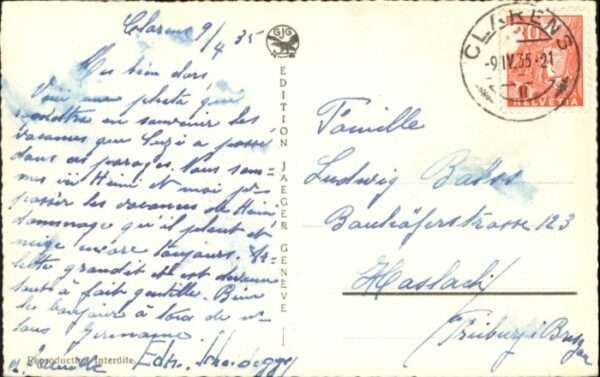 Clarens 9/4 35
Mes bien chers
Voici une photo que
mettra en souvenir les
vacances que Suzi a passé
dans ces parages. Nous som-
mes ici Heini et moi
passer les vacances de Heini
dommage qu'il pleut et
neige encore toujours.
grandit et est devenue
tout à fait gentille. Bien
le bonjour à tous de
tous Germaine
GJG
EDITION JAEGER GENÈVE
Reproduction Interdite
CLARENS
-9.IV.35-21
HELVETIA
Famille
Ludwig
Bauhöferstrasse 123
Haslach
Freiburg i Breisgau